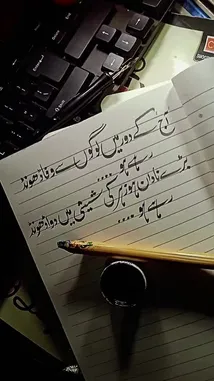 آج کے دور میں لوگوں سے وفا ڈھونڈ
رہے ہو....
بڑے نادان ہو زہر کی شیشی میں دوا ڈھونڈ
رہے ہو....